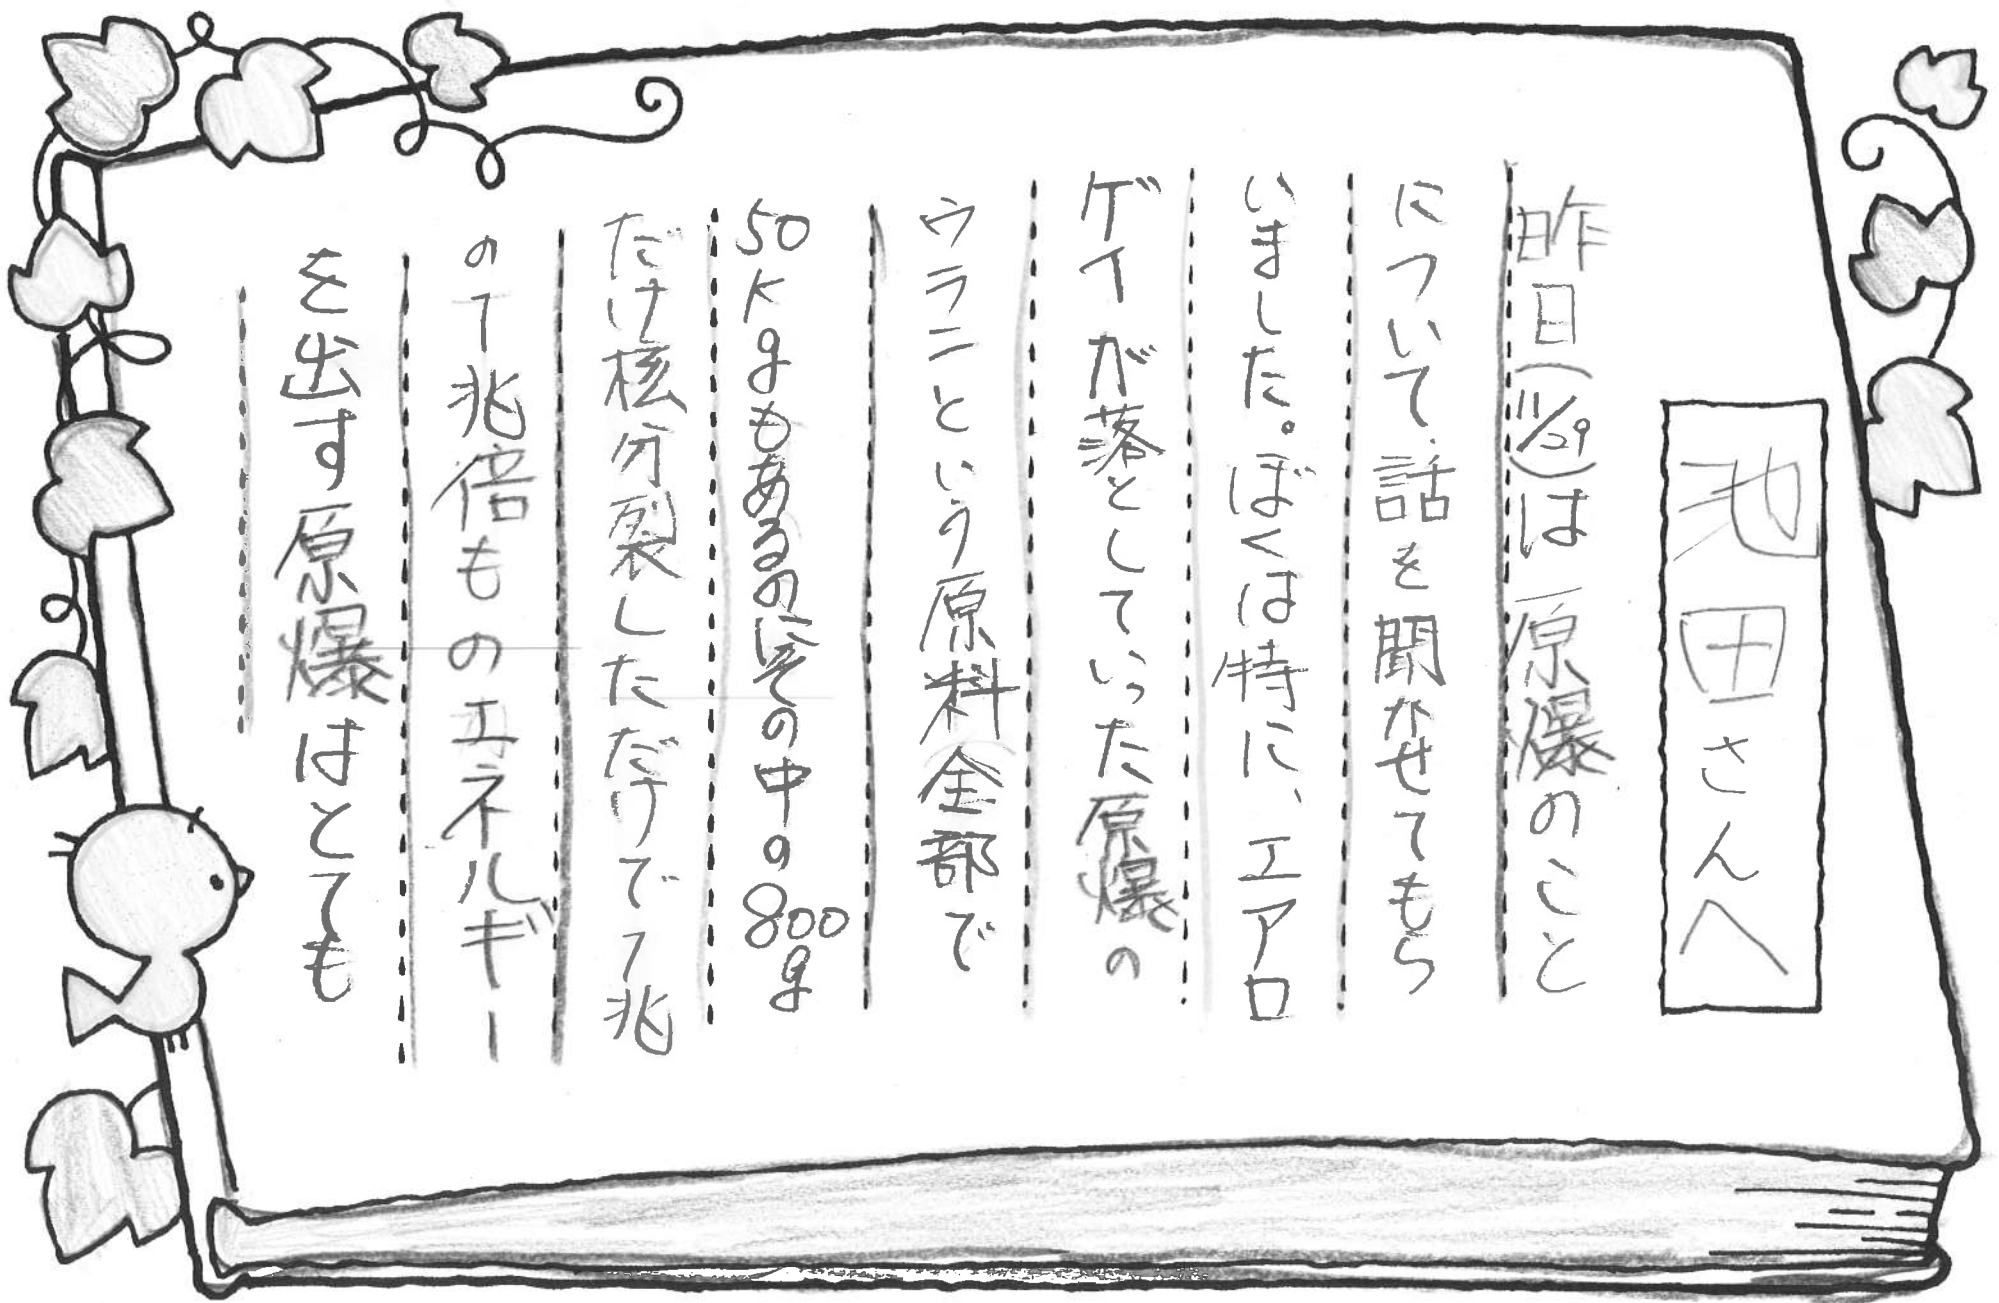 池田さんへ
昨日(11/29)は原爆のこと
について話を聞かせてもら
いました。ぼくは特に、エアロ
ゲイが落としていった原爆の
ウラニという原料全部で
50Kgもあるのにその中の800g
だけ核分裂しただけで1兆
の1兆倍ものエネルギー
を出す原爆はとても